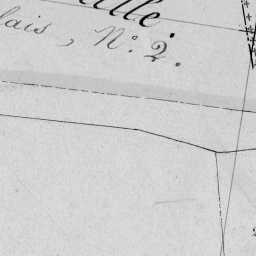 ille.
lais, N.º 2.